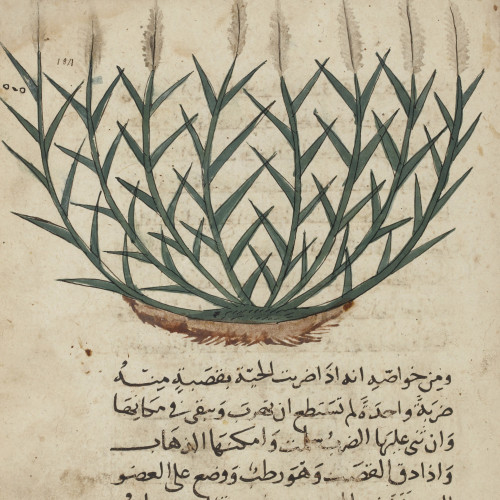 ومن خواصه انه اذا ضربت الحية بقصبة منه
ضربة واحدة لم تستطع ان تهرب وتبقى في مكانها
وان ثنى عليها الضرب سلمت وامكنها الذهاب
واذا دق القصب وهو رطب ووضع على العضو